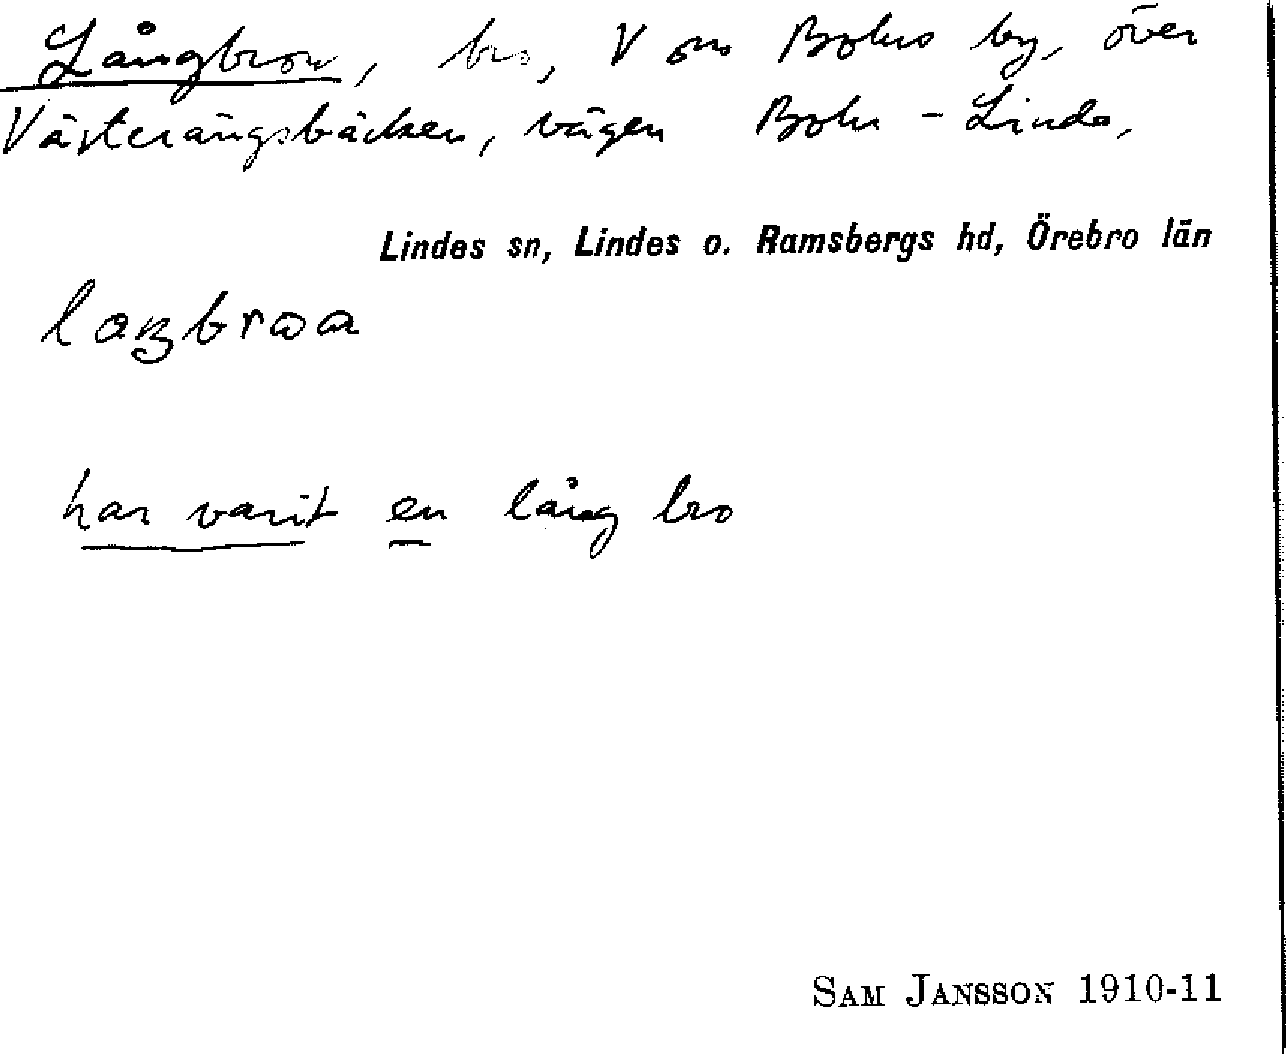 Långbron, bro, V om Bohrs by, över
Västerängsbäcken, vägen Bohr - Linde,
Lindes sn, Lindes o. Ramsbergs hd, Örebro län
har varit en lång bro
SAM JANSSON 1910-11